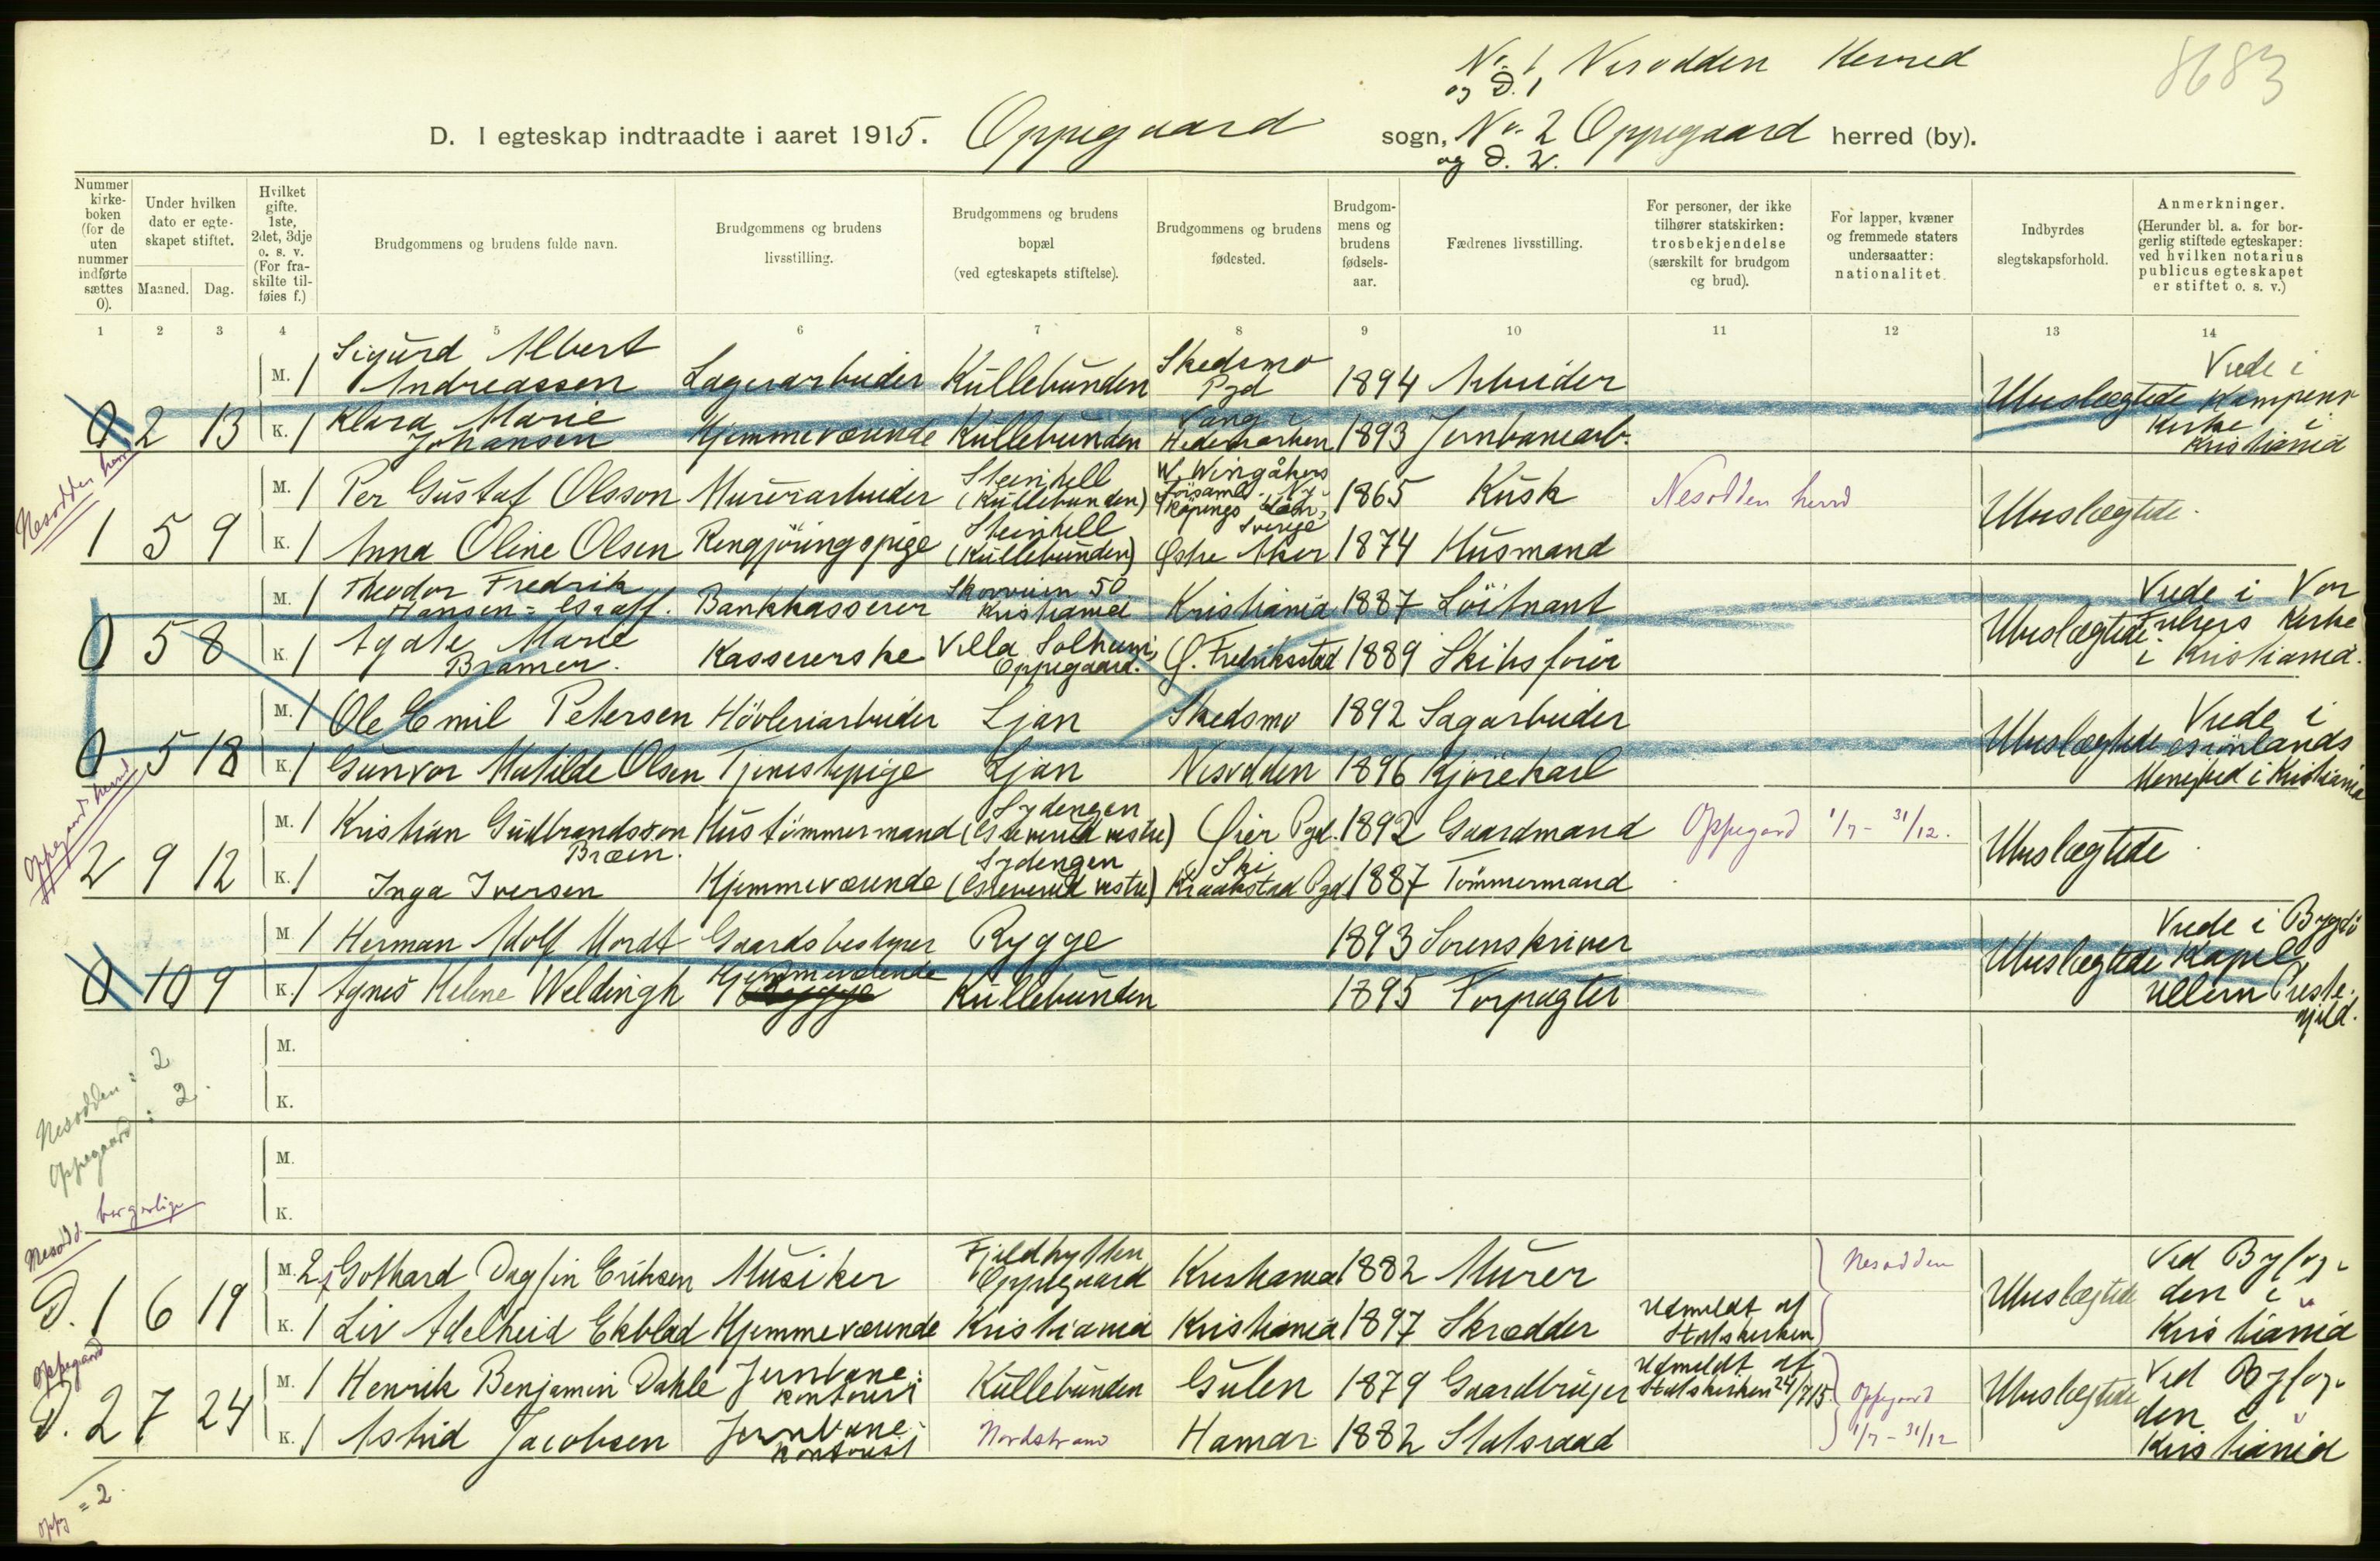 No. 1 Nesodden Herred
og D. 1
8683
D. I egteskap indtraadte i aaret 1915. Oppegaard sogn, No. 2 Oppegaard herred (by).
og D. 2.
Nummer kirke-boken (for de uten nummer indførte sættes 0).
Under hvilken dato er egte-skapet stiftet.
Maaned. Dag.
Hvilket gifte. 1ste, 2det, 3dje o. s. v. (For fra-skilte til-føies f.)
Brudgommens og brudens fulde navn.
Brudgommens og brudens livsstilling.
Brudgommens og brudens bopæl (ved egteskapets stiftelse).
Brudgommens og brudens fødested.
Brudgom-mens og brudens fødsels-aar.
Fædrenes livsstilling.
For personer, der ikke tilhører statskirken: trosbekjendelse (særskilt for brudgom og brud).
For lapper, kvæner og fremmede staters undersaatter: nationalitet.
Indbyrdes slegtskapsforhold.
Anmerkninger. (Herunder bl. a. for bor-gerlig stiftede egteskaper: ved hvilken notarius publicus egteskapet er stiftet o. s. v.)
1 2 3 4 5 6 7 8 9 10 11 12 13 14
M. 1 Sigurd Albert Andreassen Lagerarbeider Kullebunden Skedsmo Pgd 1894 Arbeider
0 2 13 K. 1 Klara Marie Johansen Hjemmeværende Kullebunden Vang i Hedemarken 1893 Jernbanearb. Ubeslægtede Viede i Kampens Kirke i Kristiania
Nesodden herred
M. 1 Per Gustaf Olsson Murerarbeider Steinhell (Kullebunden) W. Wingåkers församl. Ny-köpings Län, Sverige 1865 Kusk Nesodden herred
1 5 9 K. 1 Anna Oline Olsen Rengjöringspige Steinhell (Kullebunden) Østre Aker 1874 Husmand Ubeslægtede.
M. 1 Theodor Fredrik Hansen = Graff. Bankkasserer Skovveien 50 Kristiania Kristiania 1887 Löitnant
0 5 8 K. 1 Agate Marie Bramer. Kassererske Villa Solheim, Oppegaard. Ø. Fredriksstad 1889 Skibsförer Ubeslægtede Viede i Vor Frelsers Kirke i Kristiania.
M. 1 Ole Emil Petersen Hövleriarbeider Ljan Skedsmo 1892 Sagarbeider
0 5 18 K. 1 Gunvor Matilde Olsen Tjenestepige Ljan Nesodden 1896 Kjörekarl Ubeslægtede Viede i Grönlands Menighed i Kristiania
Oppegaard herred
M. 1 Kristian Gudbrandssön Bræin. Hustömmermand Sydengen (Greverud vestre) Öier Pgd. 1892 Gaardmand Oppegard 1/7 - 31/12.
2 9 12 K. 1 Inga Iversen Hjemmeværende Sydengen (Greverud vestre) Ski Kraakstad Pgd 1887 Tömmermand Ubeslægtede
M. 1 Herman Adolf Mordt Gaardsbestyrer Rygge 1893 Sorenskriver
0 10 9 K. 1 Agnes Helene Weldingh Hjemmeværende Kullebunden 1895 Forpagter Ubeslægtede Viede i Bygdö Kapel Ullern Preste-gjeld.
M.
K.
Nesodden: 2
Oppegaard: 2.
M.
K.
Nesodd. borgerlige
M. 2f Gothard Dagfin Eriksen Musiker Fjeldhytten Oppegaard Kristiania 1882 Murer Nesodden
D. 1 6 19 K. 1 Liv Adelheid Ekblad Hjemmeværende Kristiania Kristiania 1897 Skrædder Udmeldt af Statskirken Ubeslægtede Ved Byfog-den i Kristiania
Oppegaard
M. 1 Henrik Benjamin Dahle Jernbane-kontorist Kullebunden Gulen 1879 Gaardbruger Udmeldt af Statskirken 24/7 15. Oppegard
D. 2 7 24 K. 1 Astrid Jacobsen Jernbane-kontorist Nordstrand Hamar 1882 Statsraad 1/7 - 31/12 Ubeslægtede Ved Byfog-den i Kristiania
Oppg = 2.